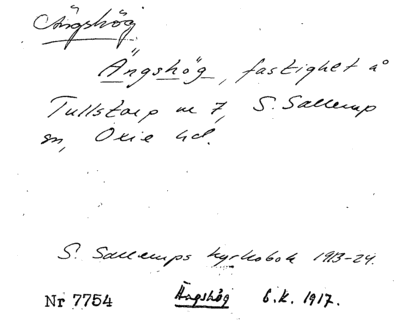 Ängshög
Ängshög, fastighet å
Tullstorp nr 7, S. Sallerup
sn, Oxie hd.
S. Sallerups kyrkobok 1913-24.
Nr 7754 Ängshög E.K. 1917.